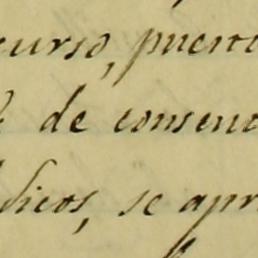 curso, puert
de consen
dicos, se apr